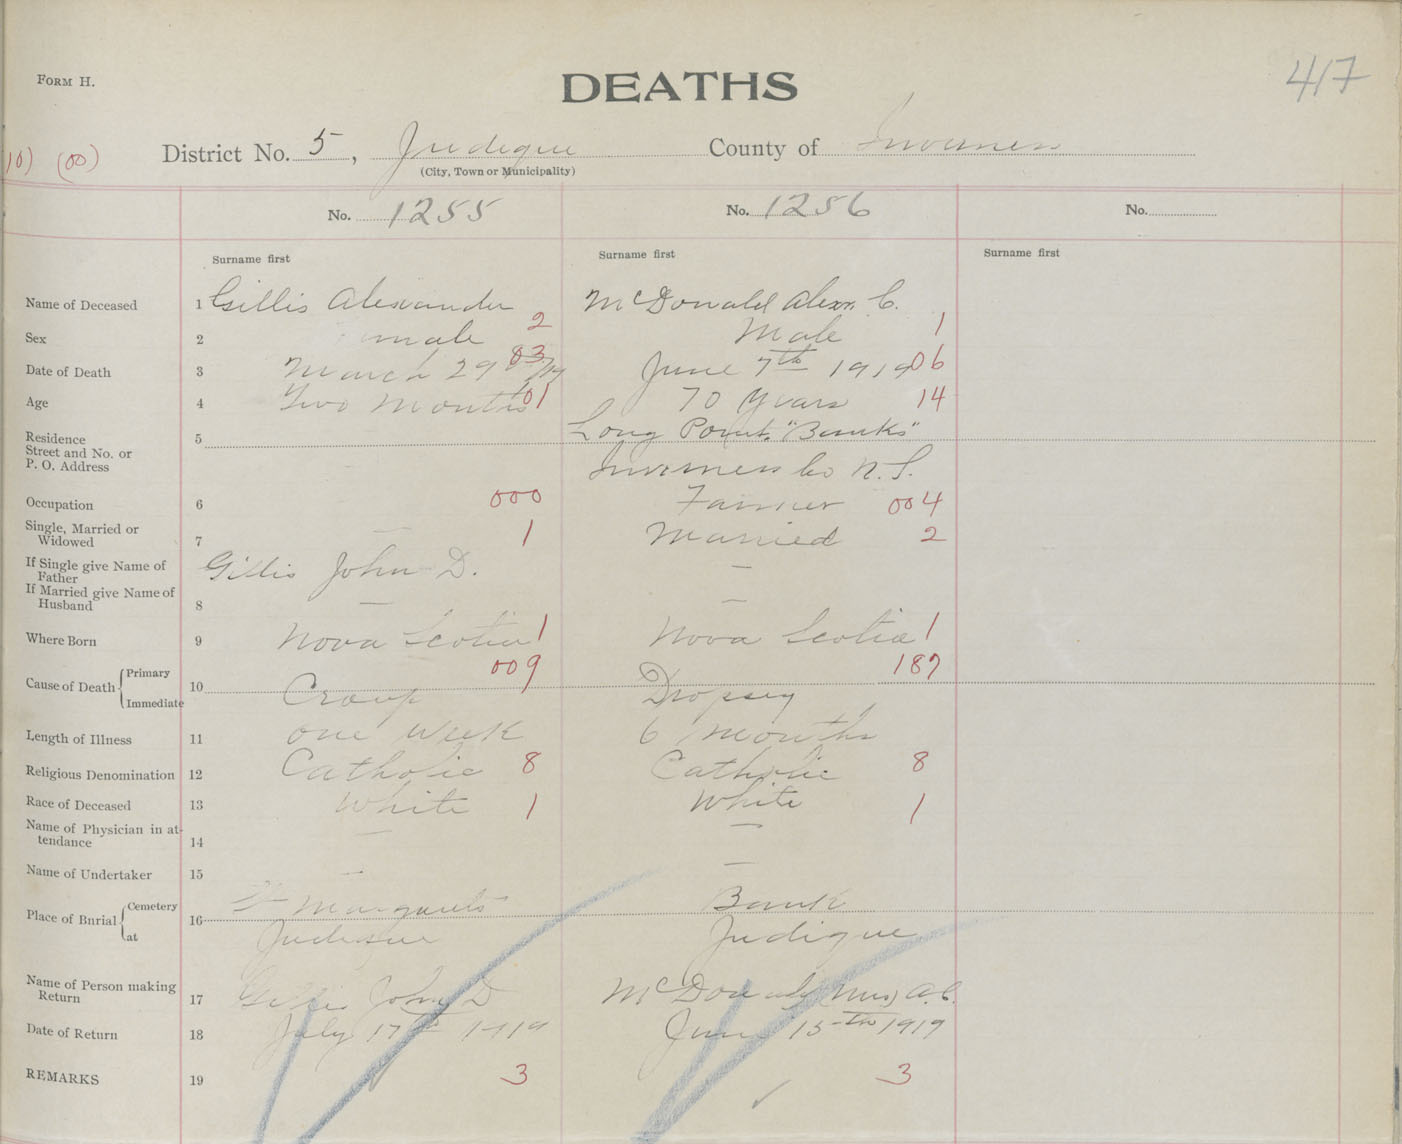 FORM H.
DEATHS
417
10) (00)
District No. 5, Judique County of Inverness
(City, Town or Municipality)
No. 1255 No. 1256 No.
Surname first Surname first Surname first
Name of Deceased 1 Gillis Alexander McDonald Alexr. C.
Sex 2 male 2 Male 1
Date of Death 3 March 29 /19 03 June 7th 1919 06
Age 4 Two Months 01 70 Years 14
Residence 5 Long Point. "Banks"
Street and No. or
P. O. Address Inverness Co N. S.
Occupation 6 000 Farmer 004
Single, Married or
Widowed 7 — 1 Married 2
If Single give Name of
Father Gillis John D. —
If Married give Name of
Husband 8 — —
Where Born 9 Nova Scotia 1 Nova Scotia 1
Cause of Death { Primary 009 187
Immediate 10 Croup Dropsey
Length of Illness 11 one week 6 months
Religious Denomination 12 Catholic 8 Catholic 8
Race of Deceased 13 White 1 White 1
Name of Physician in at-
tendance 14 — —
Name of Undertaker 15 — —
Place of Burial { Cemetery 16 St Margarets Bank
at Judique Judique
Name of Person making
Return 17 Gillis John D McDonald (Mrs) A. C.
Date of Return 18 July 17th 1919 June 15th 1919
REMARKS 19 3 3